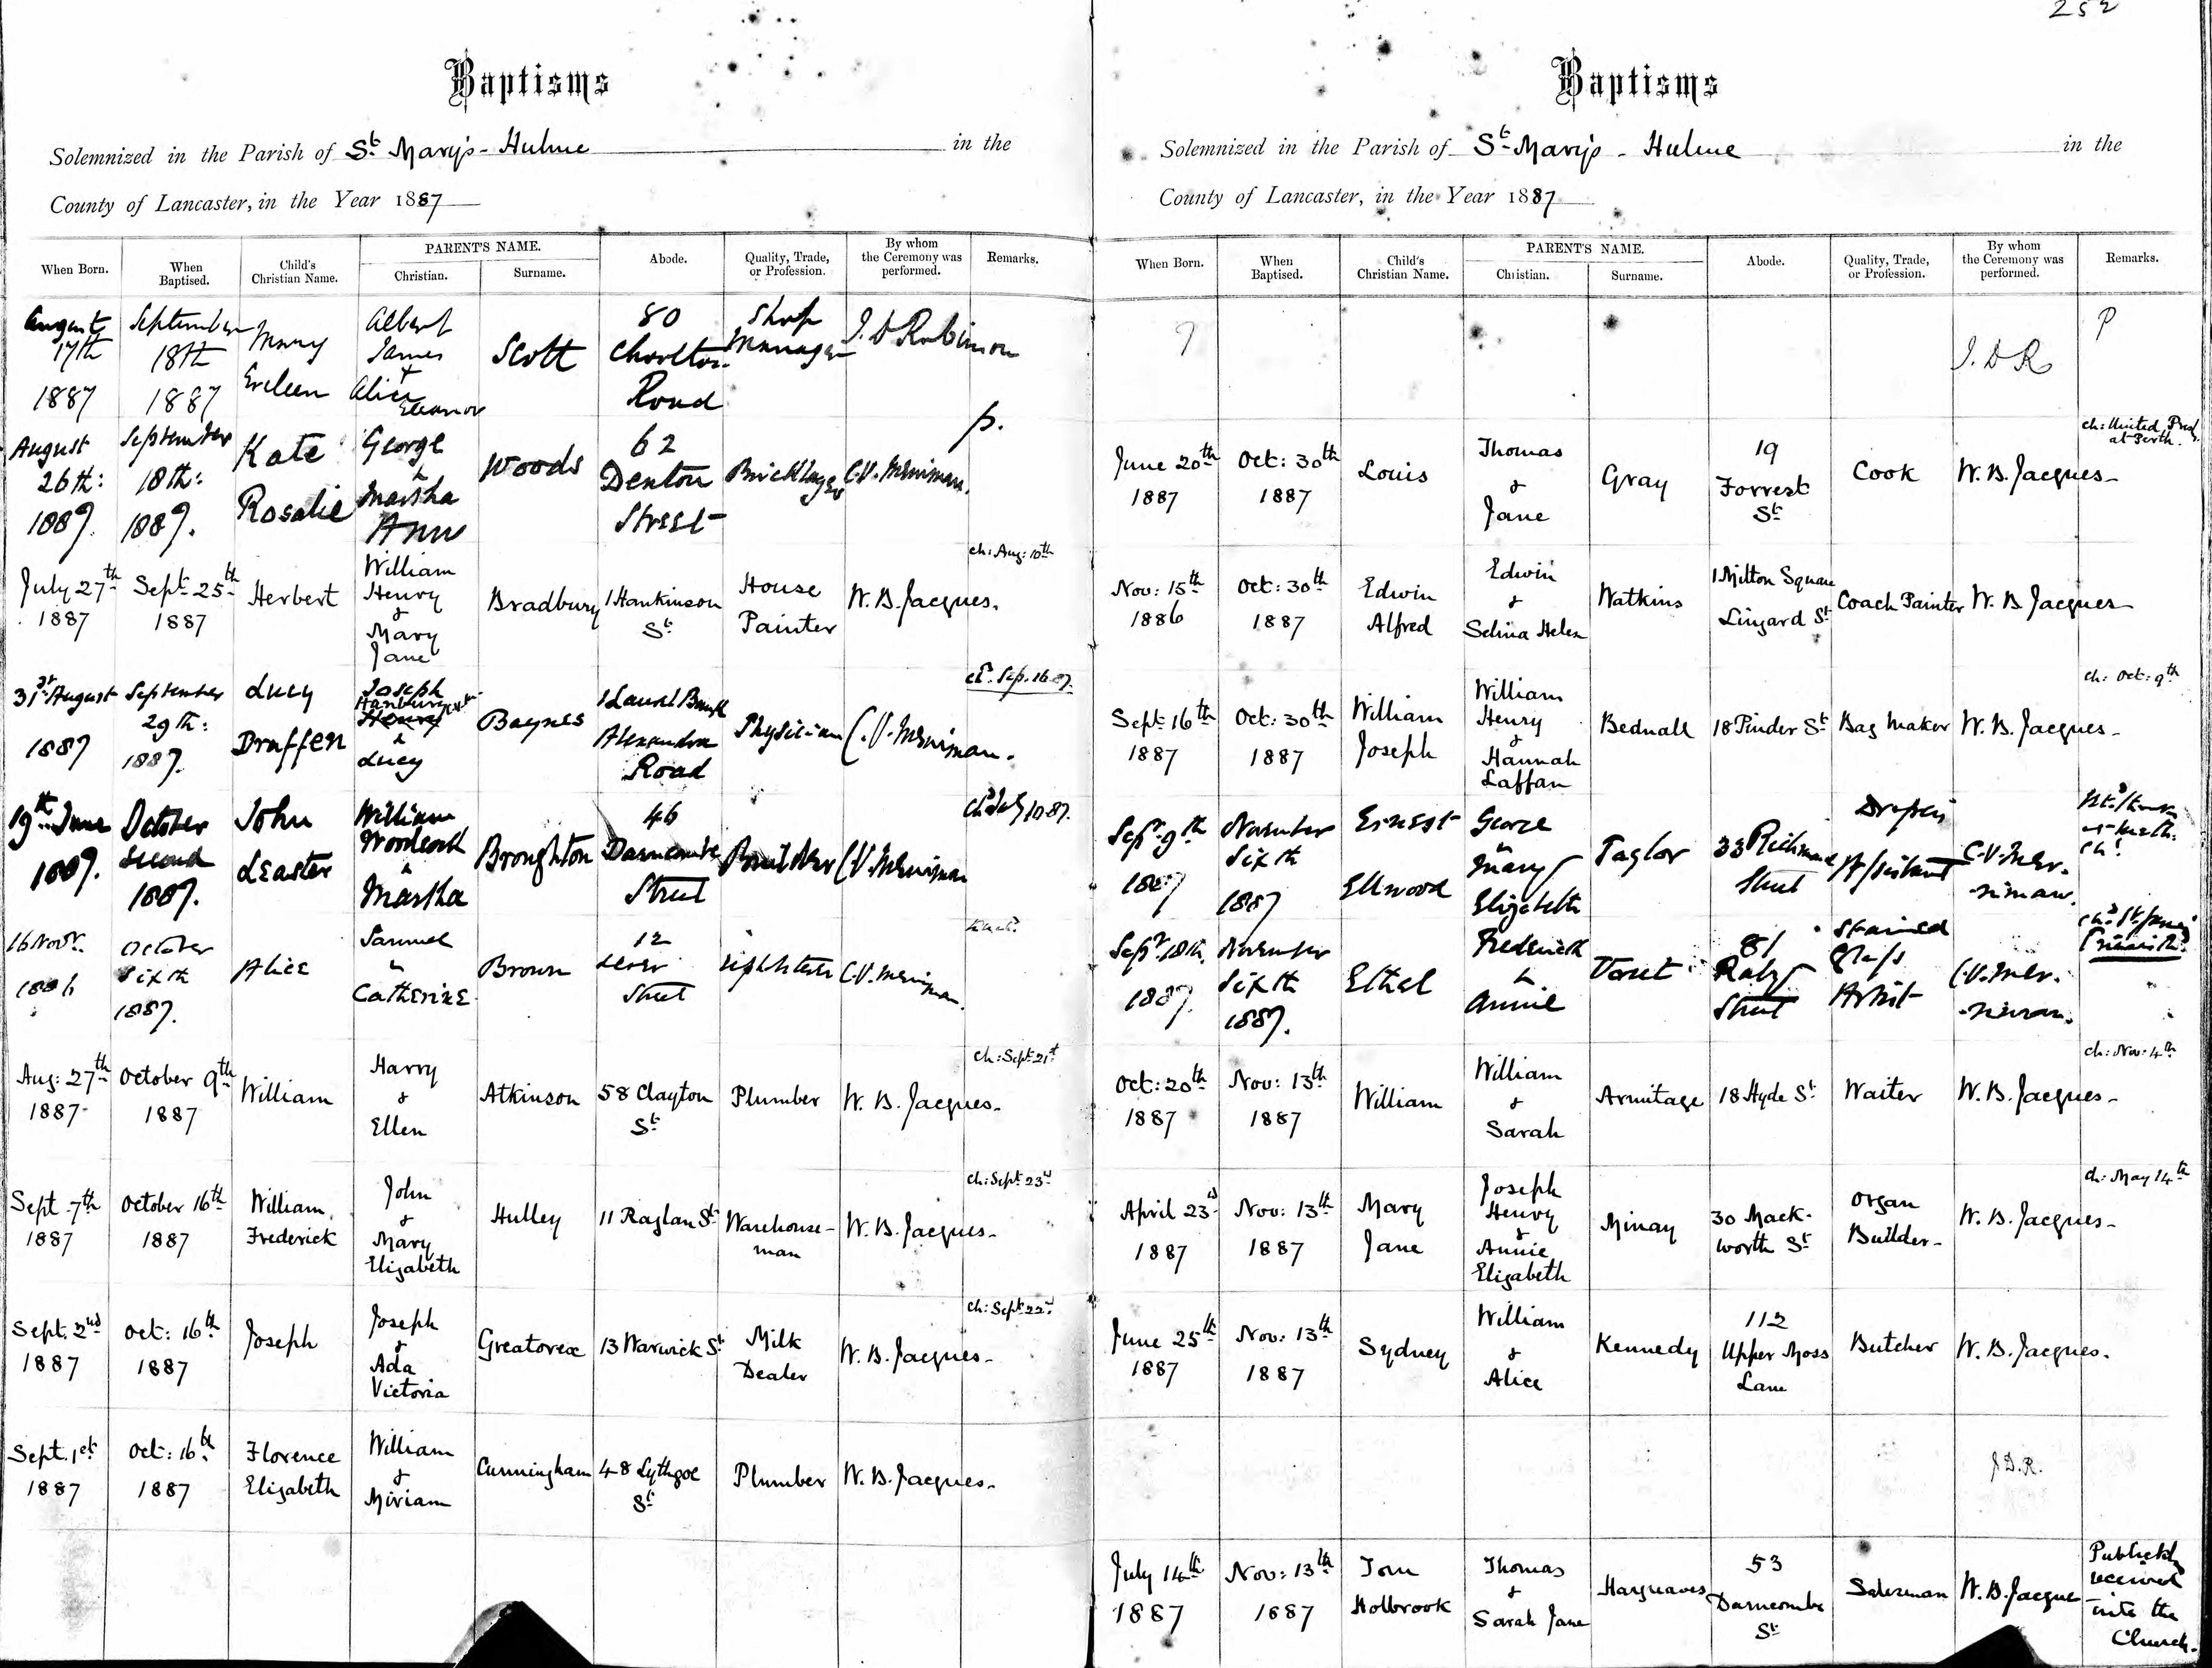 252
Baptisms
Solemnized in the Parish of St Mary's - Hulme in the
County of Lancaster, in the Year 1887
When Born. When Baptised. Child's Christian Name. PARENT'S NAME. Christian. Surname. Abode. Quality, Trade, or Profession. By whom the Ceremony was performed. Remarks.
August 17th 1887 September 18th 1887 Mary Eveleen Albert James + Alice Eleanor Scott 80 Chorlton Road Shop Manager J. D Robinson
p.
August 26th: 1887. September 18th: 1887. Kate Rosalie George & Martha Ann Woods 62 Denton Street Bricklayer C.V. Merriman.
July 27th 1887 Sept: 25th 1887 Herbert William Henry & Mary Jane Bradbury 1 Hankinson St House Painter W. B. Jacques. ch: Aug: 10th
31st August 1887 September 29th: 1887. Lucy Draffen Joseph Hanbury Henry & Lucy Baynes 1 Laurel Bank Alexandra Road Physician C.V. Merriman. ch. Sep. 16. 87.
19th June 1887. October second 1887. John Leaster William Woodcock & Martha Broughton 46 Darncombe Street C.V. Merriman chd July 10. 87.
16 Novr. 1886 October Sixth 1887. Alice Samuel & Catherine Brown 12 Lever Street C.V. Merriman.
Aug: 27th 1887- October 9th 1887 William Harry & Ellen Atkinson 58 Clayton St Plumber W. B. Jacques- ch: Sept: 21st
Sept 7th 1887 October 16th 1887 William Frederick John & Mary Elizabeth Hulley 11 Raglan St Warehouse-man W. B. Jacques- ch: Sept 23rd
Sept. 2nd 1887 Oct: 16th 1887 Joseph Joseph & Ada Victoria Greatorex 13 Warwick St Milk Dealer W. B. Jacques- ch: Sept: 22nd
Sept. 1st 1887 Oct: 16th 1887 Florence Elizabeth William & Miriam Cunningham 48 Lythgoe St Plumber W. B. Jacques-
Baptisms
Solemnized in the Parish of St Mary's - Hulme in the
County of Lancaster, in the Year 1887
When Born. When Baptised. Child's Christian Name. PARENT'S NAME. Christian. Surname. Abode. Quality, Trade, or Profession. By whom the Ceremony was performed. Remarks.
? J. D R P
June 20th 1887 Oct: 30th 1887 Louis Thomas & Jane Gray 19 Forrest St Cook W. B. Jacques- ch: United at Perth.
Nov: 15th 1886 Oct: 30th 1887 Edwin Alfred Edwin & Selina Helen Watkins 1 Milton Square Lingard St Coach Painter W. B Jacques-
Sept 16th 1887 Oct: 30th 1887 William Joseph William Henry & Hannah Laffan Bednall 18 Pinder St Bag Maker W. B. Jacques- ch: Oct: 9th
Sepr. 9th 1887 November Sixth 1887 Ernest Ellwood George & Mary Elizabeth Taylor 33 Richmond Street Drapers Assistant C.V. Merriman.
Sepr 18th. 1887. November Sixth 1887. Ethel Frederick & Annie 81 Raby Street Stained Glass Artist C.V. Merriman.
Oct: 20th 1887 Nov: 13th 1887 William William & Sarah Armitage 18 Hyde St Waiter W. B. Jacques- ch: Nov: 4th
April 23rd 1887 Nov: 13th 1887 Mary Jane Joseph Henry & Annie Elizabeth Minay 30 Mack-worth St Organ Builder- W. B. Jacques- ch: May 14th
June 25th 1887 Nov: 13th 1887 Sydney William & Alice Kennedy 112 Upper Moss Lane Butcher W. B. Jacques.
J. D. R.
July 14th 1887 Nov: 13th 1887 Tom Holbrook Thomas & Sarah Jane Hargreaves 53 Darncombe St Salesman W. B. Jacque Publickly received into the Church.